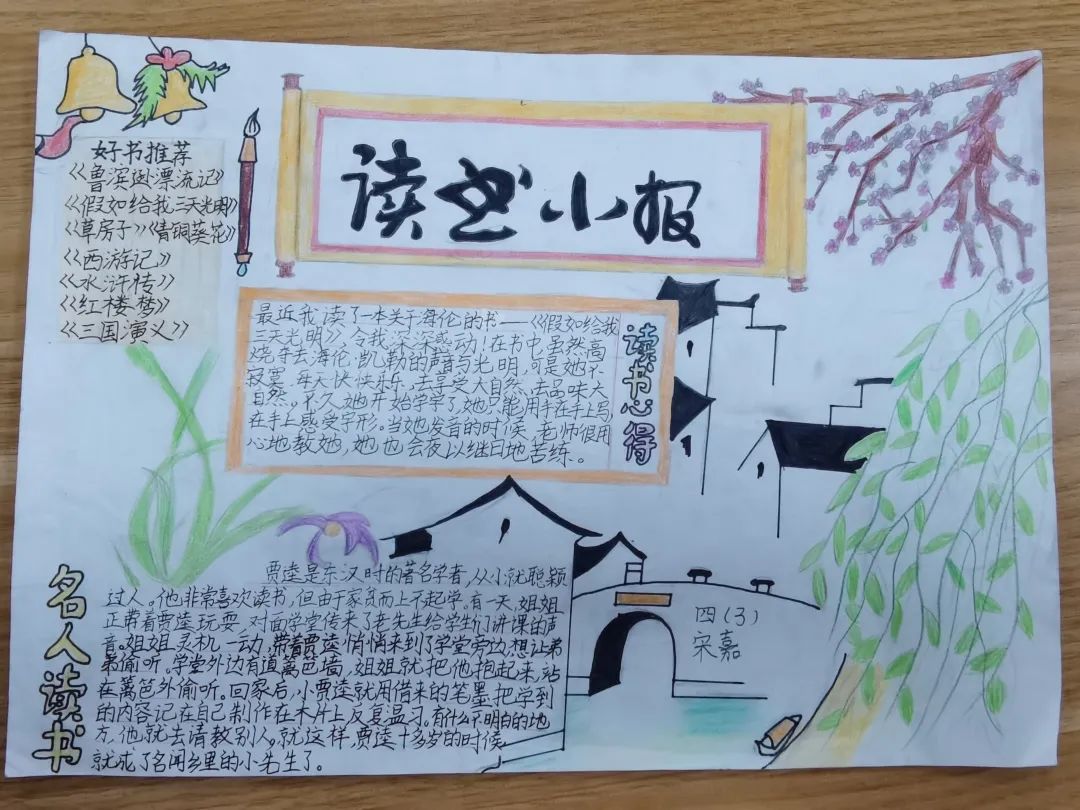 读书小报
好书推荐
《鲁滨逊漂流记》
《假如给我三天光明》
《草房子》《青铜葵花》
《西游记》
《水浒传》
《红楼梦》
《三国演义》
读书心得
最近我读了一本关于海伦的书——《假如给我
三天光明》,令我深深感动!在书中虽然高
烧夺去海伦,凯勒的声音与光明,可是她不
寂寞,每天快快乐乐,去享受大自然,去品味大
自然。不久她开始学字了,她只能用手在手上写,
在手上感受字形。当她发音的时候,老师很用
心地教她,她也会夜以继日地苦练。
名人读书
贾逵是东汉时的著名学者,从小就聪颖
过人。他非常喜欢读书,但由于家贫而上不起学。有一天,姐姐
正带着贾逵玩耍,对面学堂传来了老先生给学生们讲课的声
音。姐姐灵机一动,带着贾逵悄悄来到了学堂旁边,想让弟
弟偷听。学堂外边有道篱笆墙,姐姐就把他抱起来,站
在篱笆外偷听。回家后,小贾逵就用借来的笔墨,把学到
的内容记在自己制作在木片上反复温习。有什么不明白的地
方,他就去请教别人。就这样,贾逵十多岁的时候,
就成了名闻乡里的小先生了。
四(3)
宋嘉